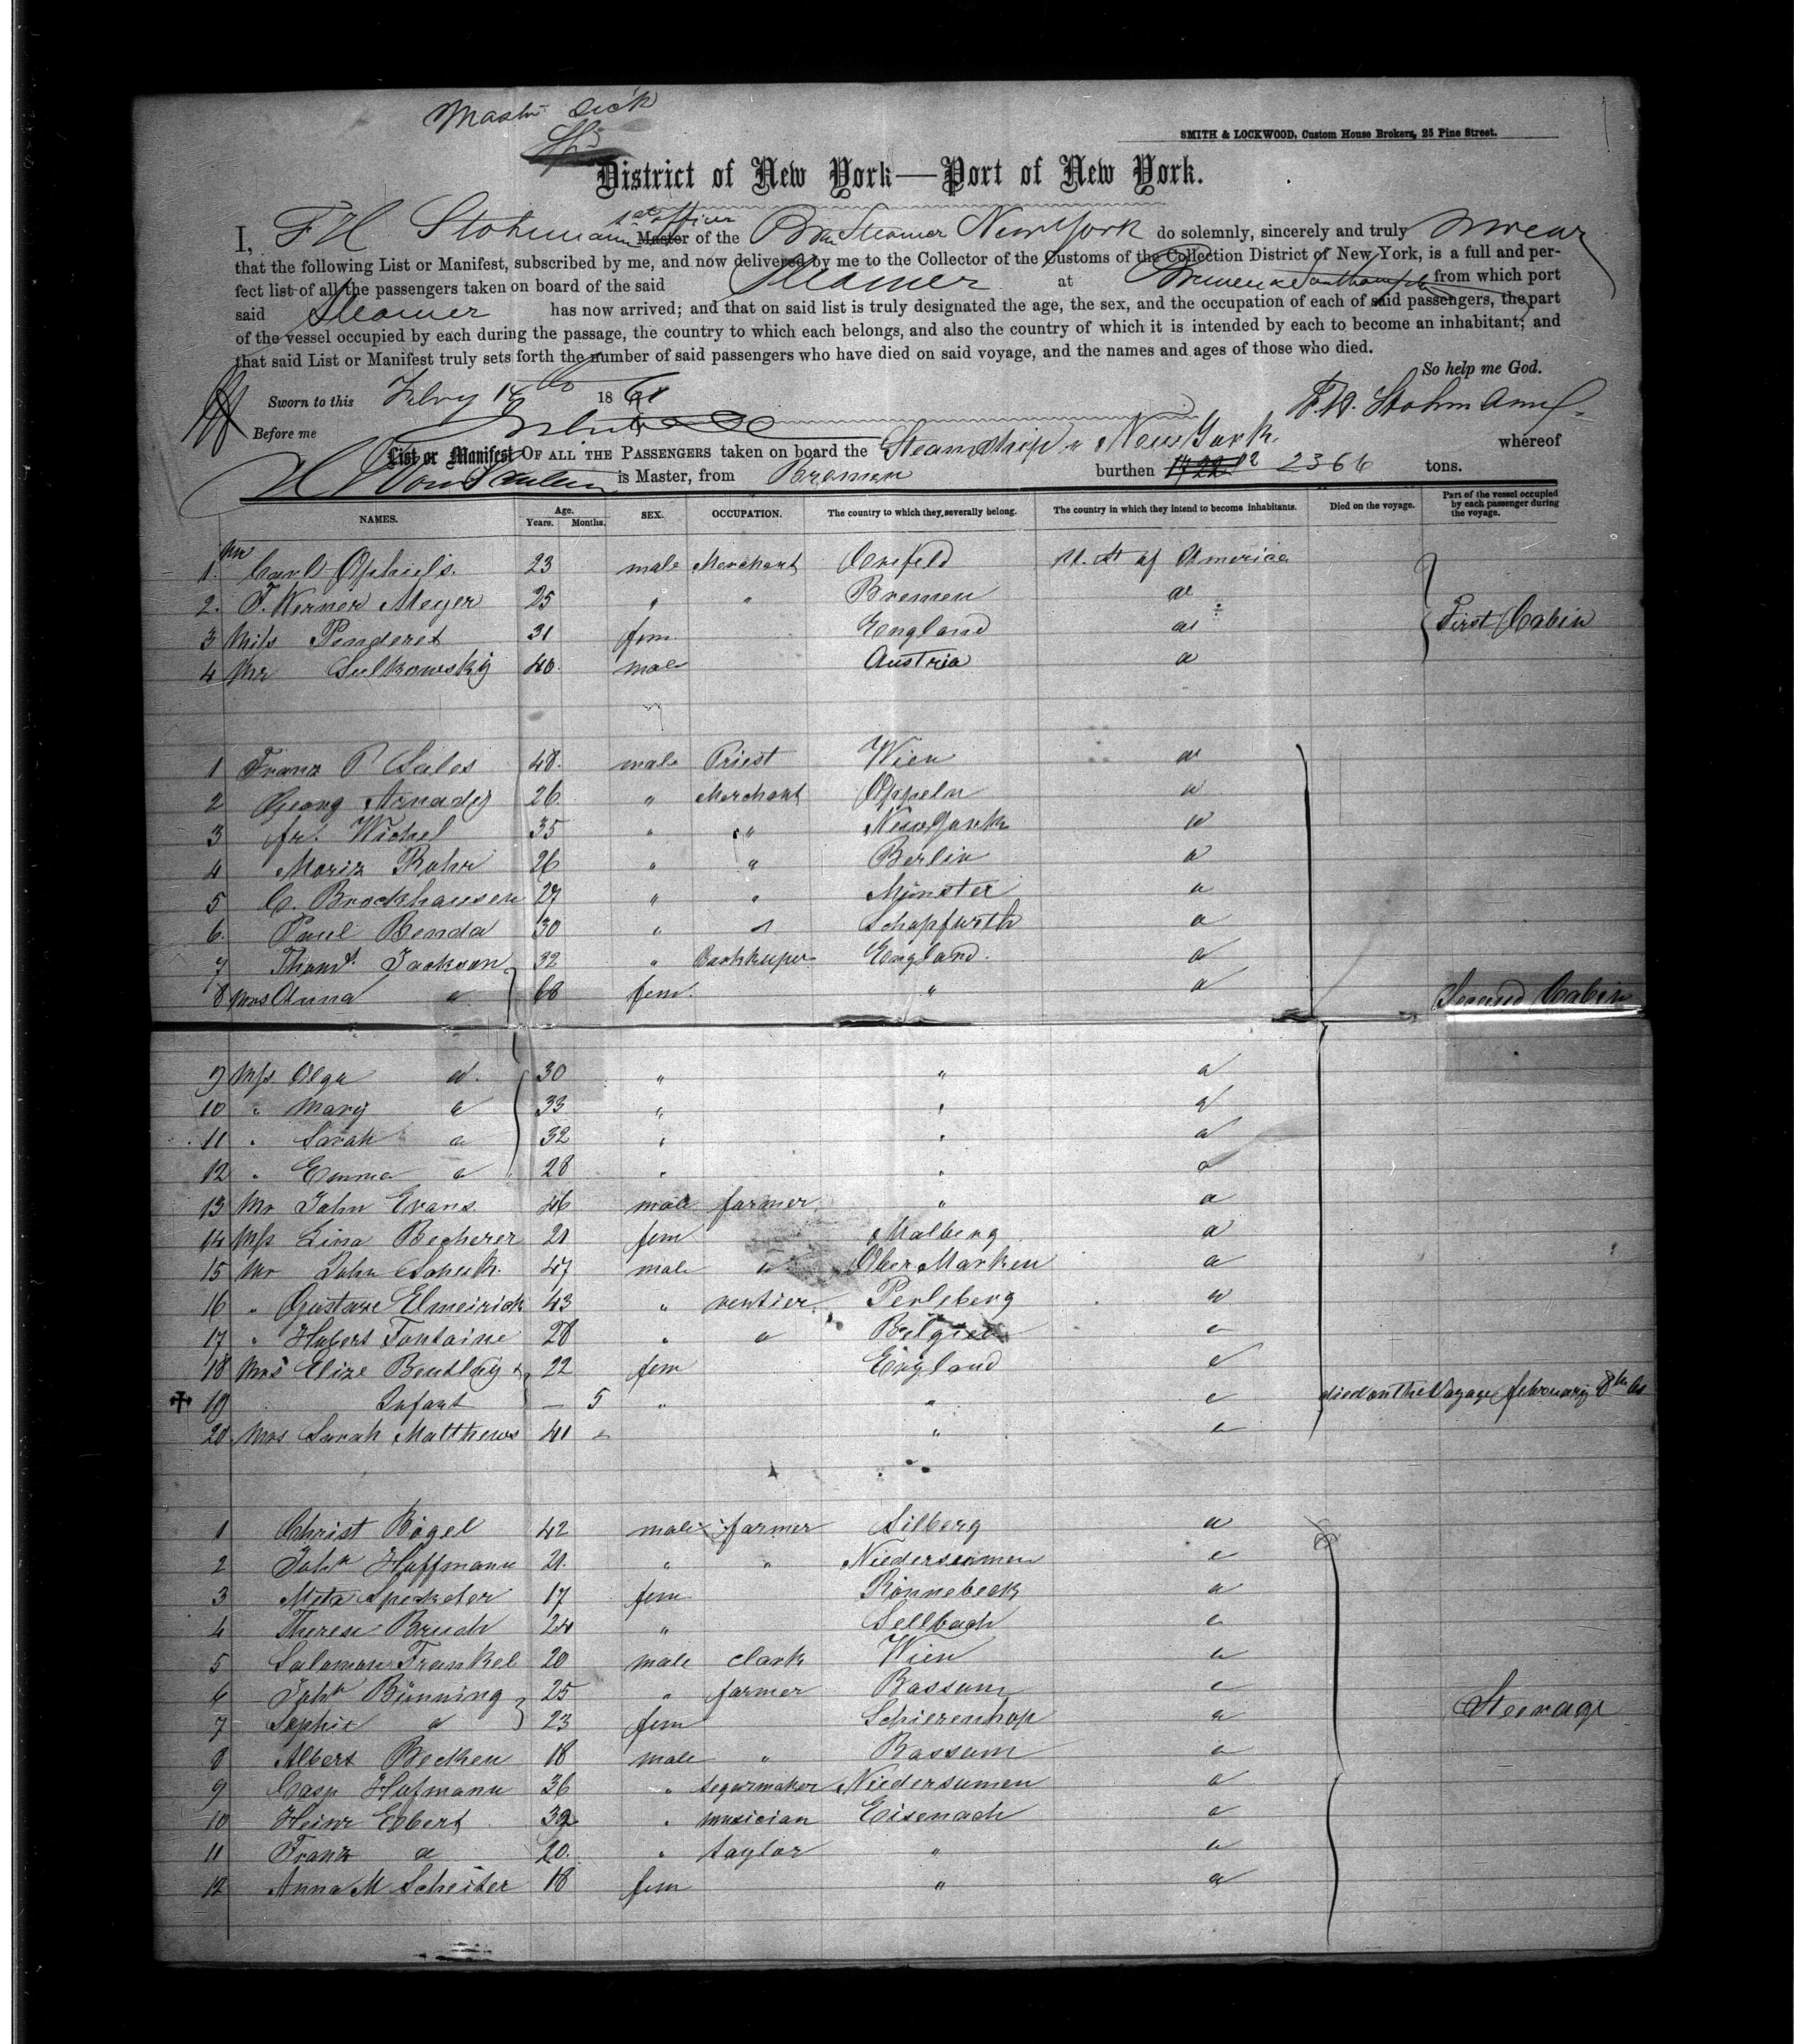 Master Sick
SMITH & LOCKWOOD, Custom House Brokers, 25 Pine Street.
District of New York—Port of New York.
1st officer
I, F H Stohmann Master of the Steamer New York do solemnly, sincerely and truly swear
that the following List or Manifest, subscribed by me, and now delivered by me to the Collector of the Customs of the Collection District of New York, is a full and per-
fect list of all the passengers taken on board of the said Steamer at Bremen & Southampton from which port
said Steamer has now arrived; and that on said list is truly designated the age, the sex, and the occupation of each of said passengers, the part
of the vessel occupied by each during the passage, the country to which each belongs, and also the country of which it is intended by each to become an inhabitant; and
that said List or Manifest truly sets forth the number of said passengers who have died on said voyage, and the names and ages of those who died.
So help me God.
Sworn to this Febry 18 61 F. H. Stohmann
Before me
List or Manifest OF ALL THE PASSENGERS taken on board the Steamship New York whereof
is Master, from Bremen burthen 2366 tons.
NAMES. Age. Years. Months. SEX. OCCUPATION. The country to which they severally belong. The country in which they intend to become inhabitants. Died on the voyage. Part of the vessel occupied by each passenger during the voyage.
1. Mr Carl Ophüls. 23 male Merchant Crefeld U. St of America
2. F. Werner Meyer 25 " " Bremen a
3 Miss Penderet 31 fem England a First Cabin
4 Mr Sulkowsky 40. male Austria a
1 Franz P Sales 48. male Priest Wien a
2 Georg Arnady 26 " Merchant Oppeln a
3 fr. Wichel 35 " " New York a
4 Moriz Rohr 26 " " Berlin a
5 C. Brockhausen 27 " " Münster a
6. Paul Benda 30 " " Schopfurth a
7 Thoms. Jackson 32 " Bookkeeper England. a
8 Mrs Anna a 68 fem. " a Second Cabin
9 Mss Olga a. 30 " " a
10 " Mary a 33 " " a
11 " Sarah a 32 " " a
12 " Emma a 28 " " a
13 Mr John Evans. 46 male farmer " a
14 Mss Lina Becherer 21 fem Malberg a
15 Mr John Schenk. 47 male a Ober Marken a
16 " Gustave Elmeirich 43 " rentier Perleberg a
17 " Hubert Fontaine 28 " a Belgien a
18 Mrs Elize Bentley & 22 fem England a
19 Infant — 5 " " a died on the Voyage february 8th
20 Mrs Sarah Matthews 41 " a
1 Christ Bögel 42 male farmer Silberg a
2 John Hoffmann 21. " " Niedersumen a
3 Meta Specketer 17 fem Rönnebeck a
4 Therese Bruch 24 " Sellbach a
5 Salomon Frankel 20 male clark Wien a
6 John Bünning 25 " farmer Bassum a
7 Sophie a 23 fem Schierenhop a Steerage
8 Albert Becken 18 male " Bassum a
9 Casp Hofmann 36 " segarmaker Niedersumen a
10 Heinr Ebert 32 " musician Eisenach a
11 Franz a 20. " taylor " a
12 Anna M Scheiter 18 fem " a